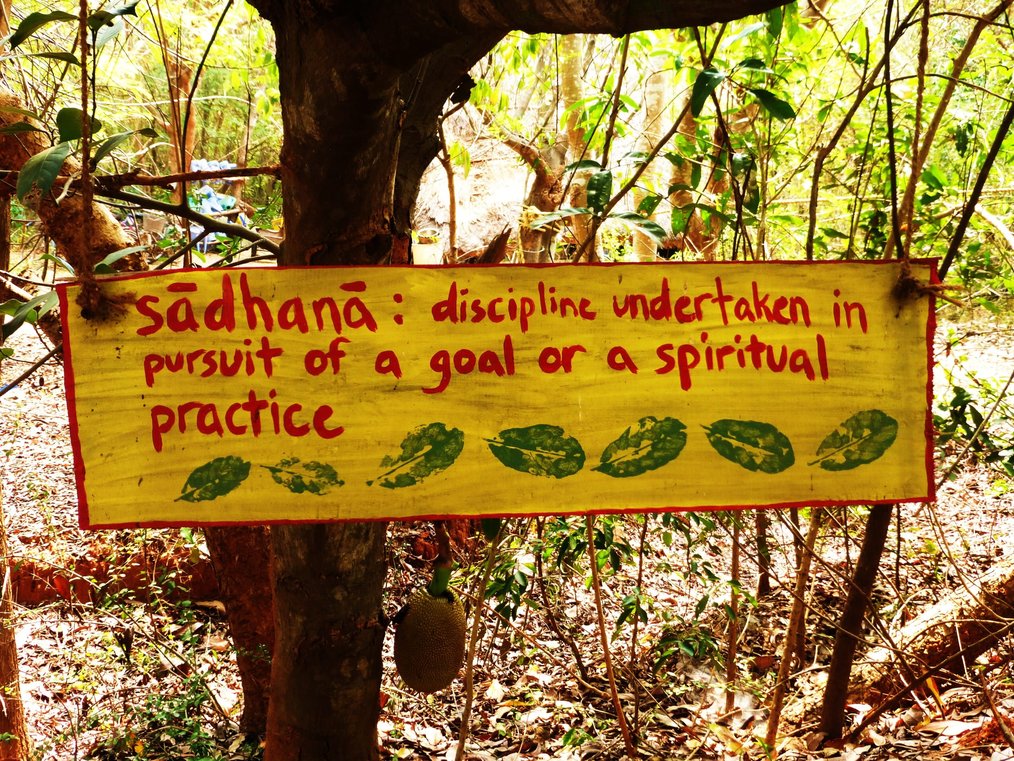 sādhanā : discipline undertaken in
pursuit of a goal or a spiritual
practice